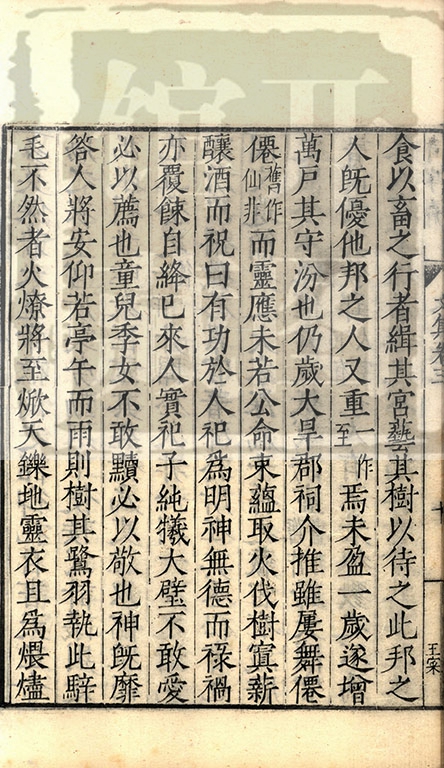 食以畜之行者緝其宮藝其樹以待之此邦之
人旣優他邦之人又重一作至焉未盈一歲遂增
萬戶其守汾也仍歲大旱郡祠介推雖屢舞僊
僊舊作仙非而靈應未若公命束蘊取火伐樹寘薪
釀酒而祝曰有功於人祀爲明神無德而祿禍
亦覆餗自絳已來人實祀子純犧大璧不敢愛
必以薦也童兒季女不敢黷必以敬也神旣靡
答人將安仰若亭午而雨則樹其鷺羽執此騂
毛不然者火燎將至焮天鑠地靈衣且爲煨燼
王寀